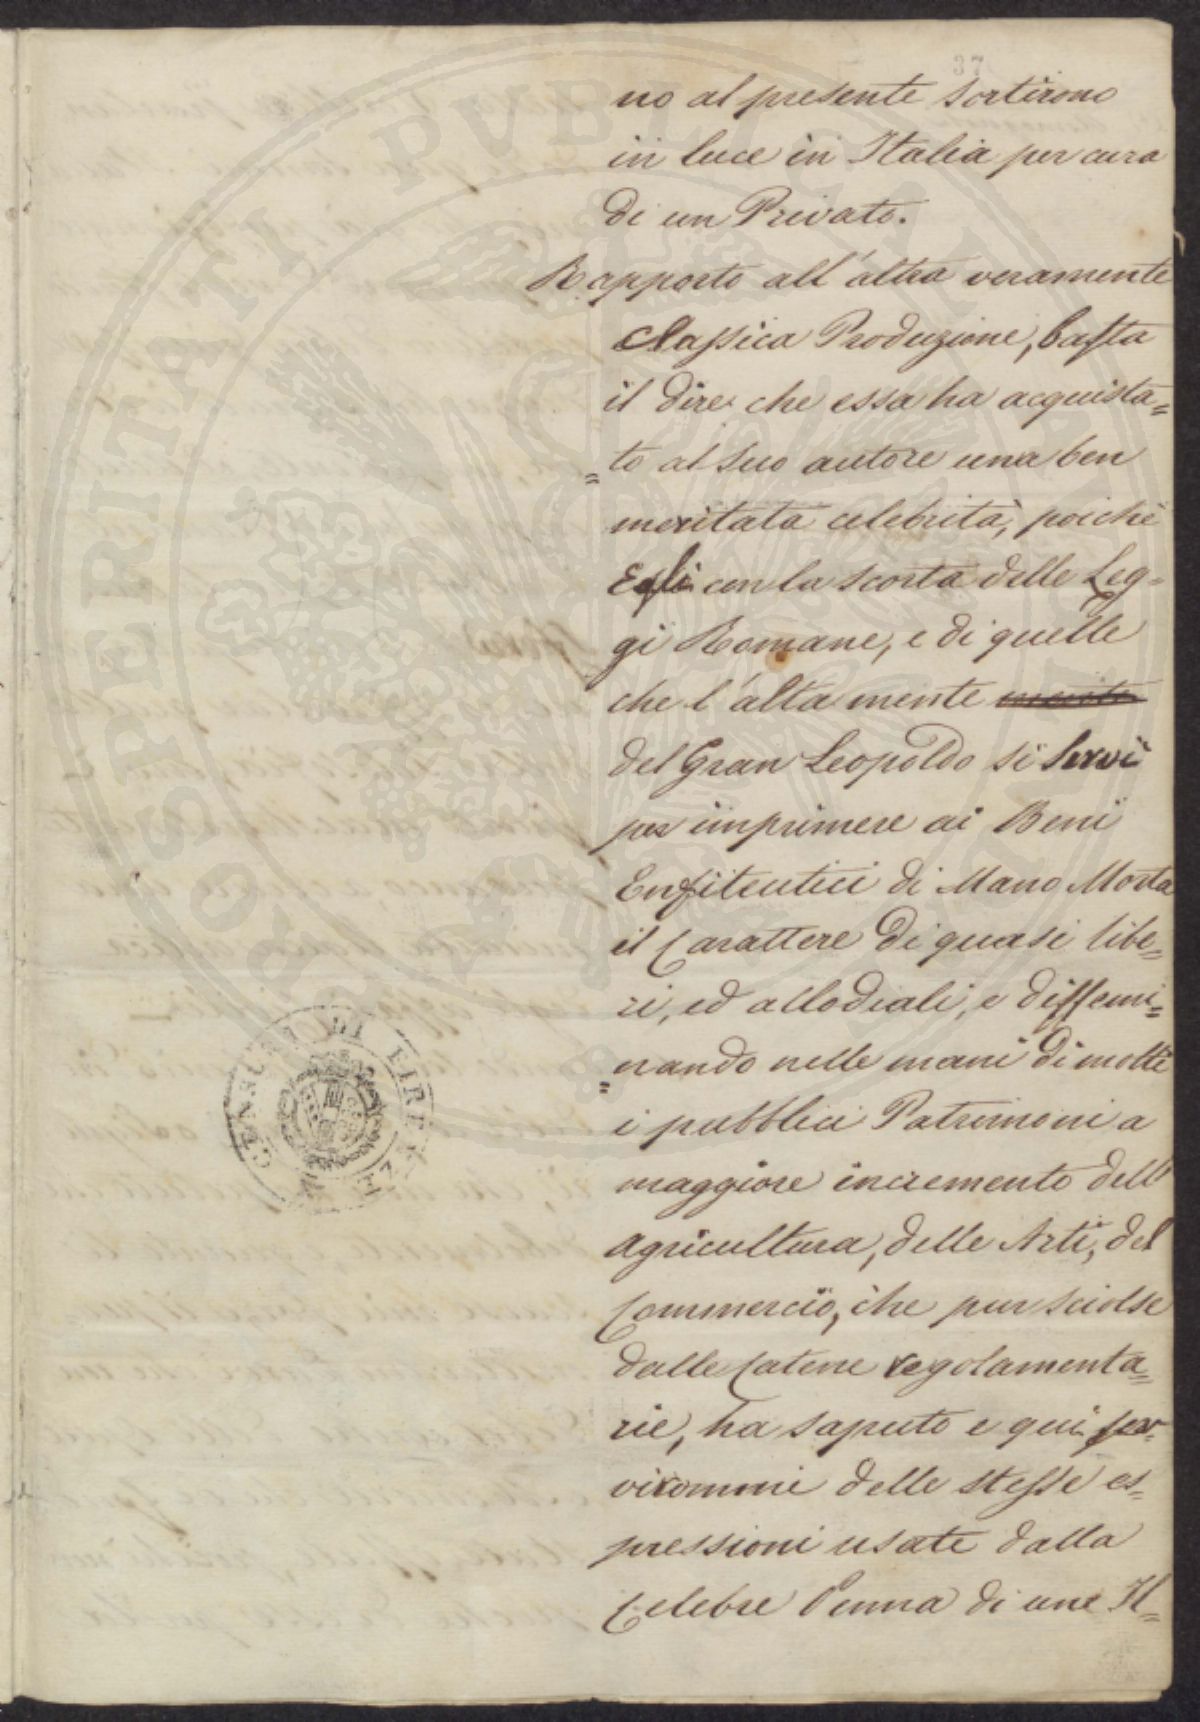 37
no al presente sortirono
in luce in Italia per cura
di un Privato.
Rapporto all'altra veramente
Classica Produzione, basta
il dire che essa ha acquista=
=to al suo autore una ben
meritata celebrità, poichè
Egli con la scorta delle Leg=
gi Romane, e di quelle
che l'alta mente
del Gran Leopoldo si servì
per imprimere ai Beni
Enfiteutici di Mano Morta
il Carattere di quasi libe=
ri, ed allodiali, e dissemi=
=nando nelle mani di molti
i pubblici Patrimoni a
maggiore incremento dell'
agricultura, delle Arti, del
Commercio, che pur sciolse
dalle Catene regolamenta=
rie, ha saputo e qui ser=
virommi delle stesse es=
pressioni usate dalla
Celebre Penna di une Il=
CENSURA DI FIRENZE
PROSPERITATI PUBLICAE